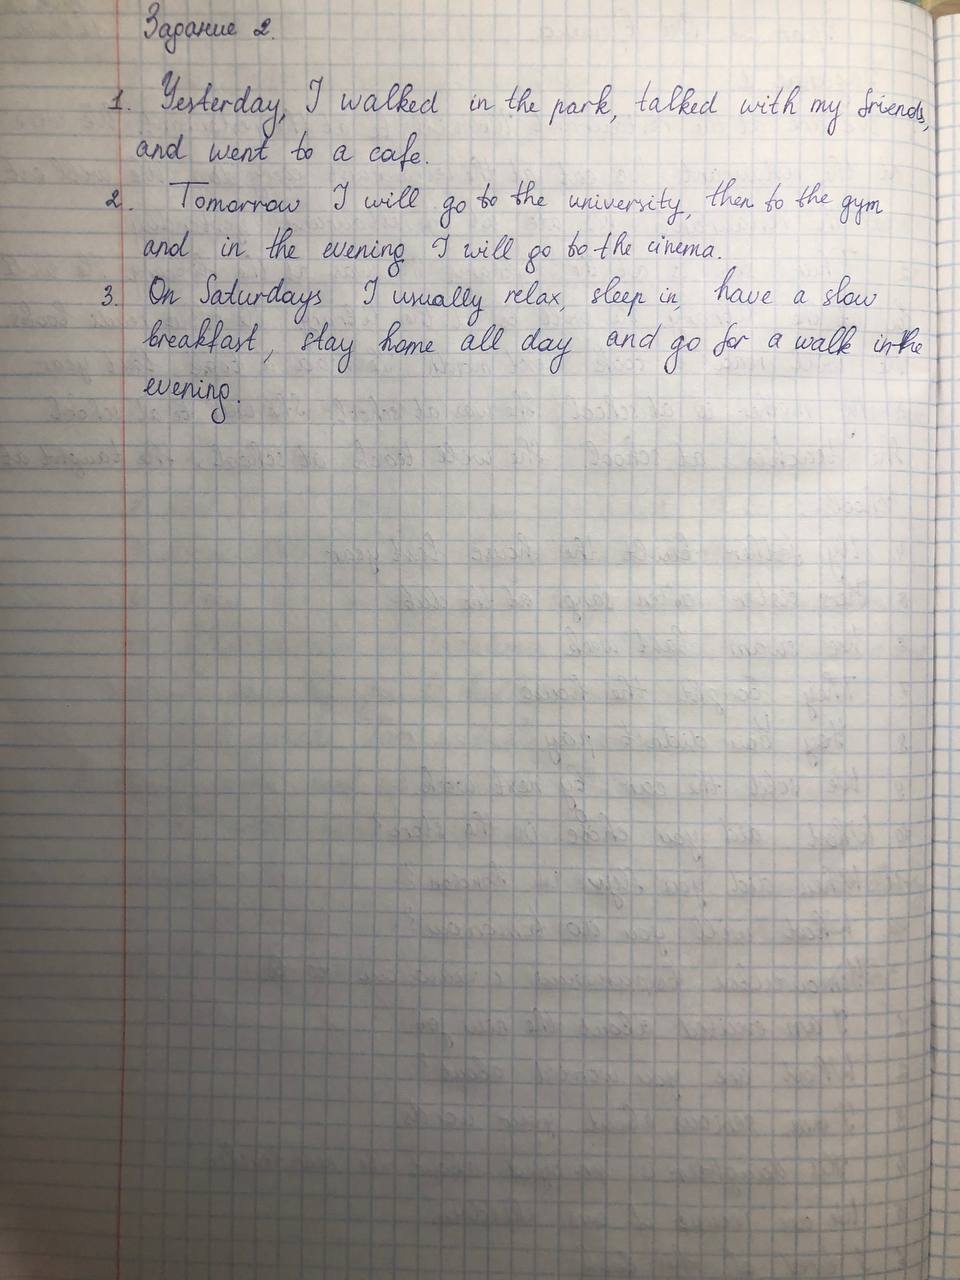 Задание 2.
1. Yesterday, I walked in the park, talked with my friends,
and went to a cafe.
2. Tomorrow I will go to the university, then to the gym
and in the evening I will go to the cinema.
3. On Saturdays I usually relax, sleep in, have a slow
breakfast, stay home all day and go for a walk in the
evening.